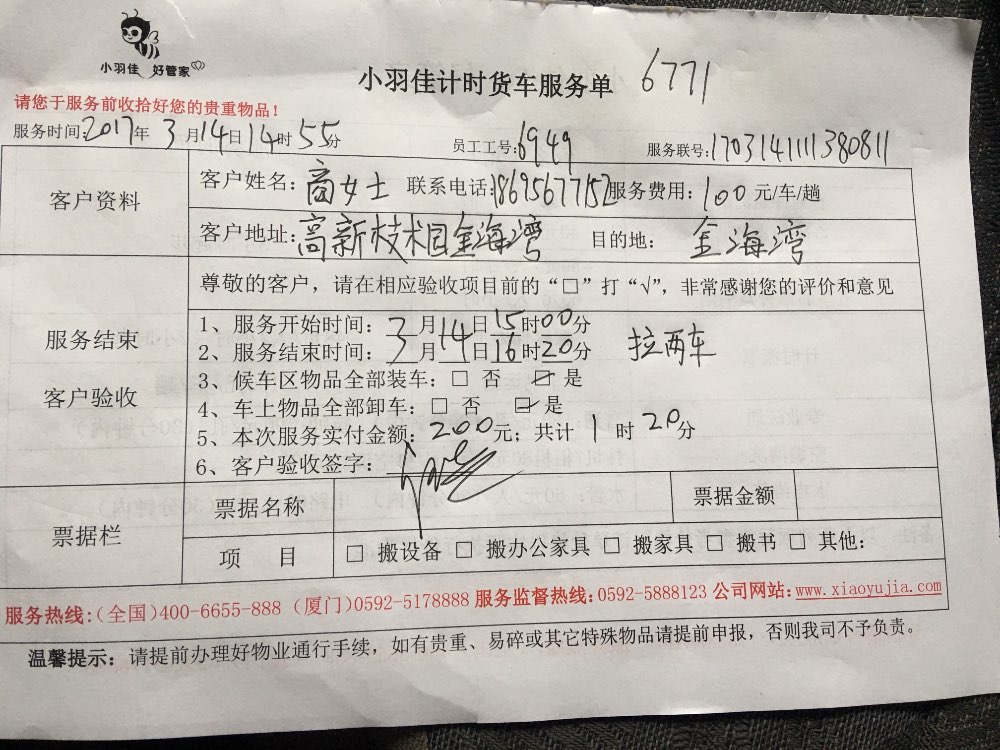 小羽佳 好管家
小羽佳计时货车服务单 6771
请您于服务前收拾好您的贵重物品!
服务时间:2017年 3月14日14时55分 员工工号:6949 服务联号:1703141111380811
客户资料
客户姓名:商女士 联系电话:18695677152 服务费用:100元/车/趟
客户地址:高新技术园金海湾 目的地: 金海湾
尊敬的客户,请在相应验收项目前的“□”打“√”,非常感谢您的评价和意见
服务结束
客户验收
1、服务开始时间:3月14日15时00分
2、服务结束时间:3月14日16时20分 拉两车
3、候车区物品全部装车:□ 否 ☑ 是
4、车上物品全部卸车:□ 否 ☑ 是
5、本次服务实付金额:200元;共计 1 时 20分
6、客户验收签字:
票据栏
票据名称 票据金额
项 目 □ 搬设备 □ 搬办公家具 □ 搬家具 □ 搬书 □ 其他:
服务热线:(全国)400-6655-888 (厦门)0592-5178888 服务监督热线:0592-5888123 公司网站:www.xiaoyujia.com
温馨提示:请提前办理好物业通行手续,如有贵重、易碎或其它特殊物品请提前申报,否则我司不予负责。